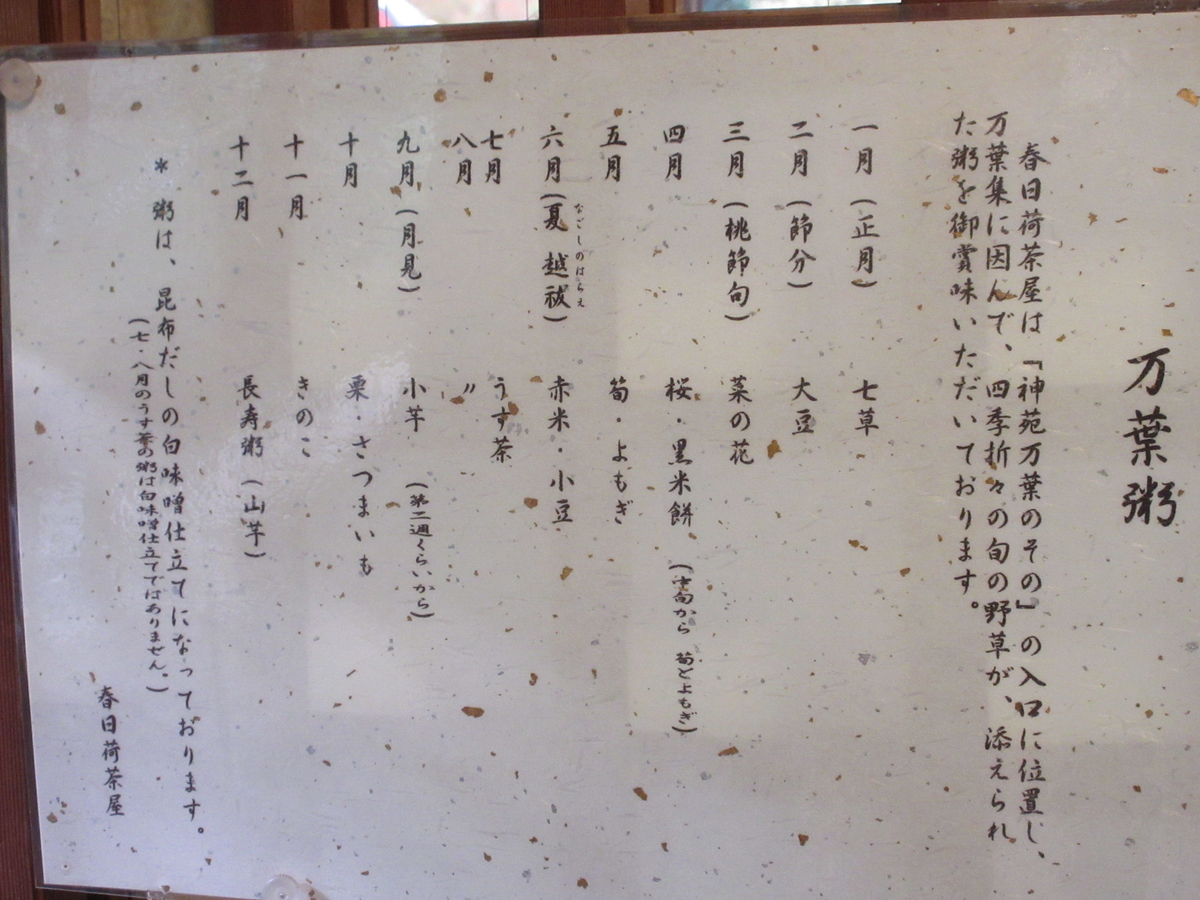 万葉粥
春日荷茶屋は『神苑万葉のその』の入口に位置し、
万葉集に因んで、四季折々の旬の野草が、添えられ
た粥を御賞味いただいております。
一月（正月） 七草
二月（節分） 大豆
三月（桃節句） 菜の花
四月 桜・黒米餅（中旬から 筍とよもぎ）
五月 筍・よもぎ
なごしのはらえ
六月（夏越祓） 赤米・小豆
七月 うす茶
八月 〃
九月（月見） 小芋（第二週くらいから）
十月 栗・さつまいも
十一月 きのこ
十二月 長寿粥（山芋）
＊粥は、昆布だしの白味噌仕立てになっております。
（七・八月のうす茶の粥は白味噌仕立てではありません。）
春日荷茶屋